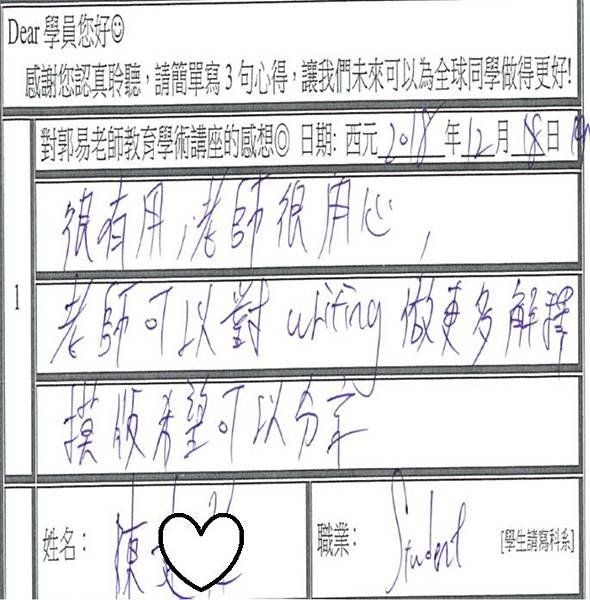 Dear 學員您好☺
感謝您認真聆聽，請簡單寫 3 句心得，讓我們未來可以為全球同學做得更好!
對郭易老師教育學術講座的感想◎ 日期: 西元 2018 年 12 月 18 日
1
很有用，老師很用心，
老師可以對 writing 做更多解釋
摸版希望可以分享
姓名： 陳
職業: Student [學生請寫科系]